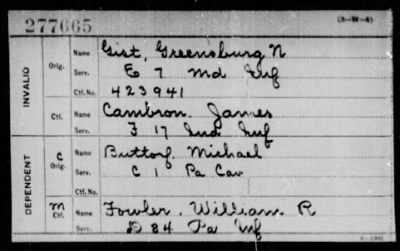 277665
(3-W-4)
INVALID
Orig. Name Gist, Greensburg N
Serv. E 7 Md Inf
Ctf. No. 423941
Ctf. Name Cambron, James
Serv. F 17 Ind Inf
DEPENDENT
C Orig. Name Buttorf, Michael
Serv. C 1 Pa Cav
M Ctf. Name Fowler, William R
Serv. D 84 Pa Inf